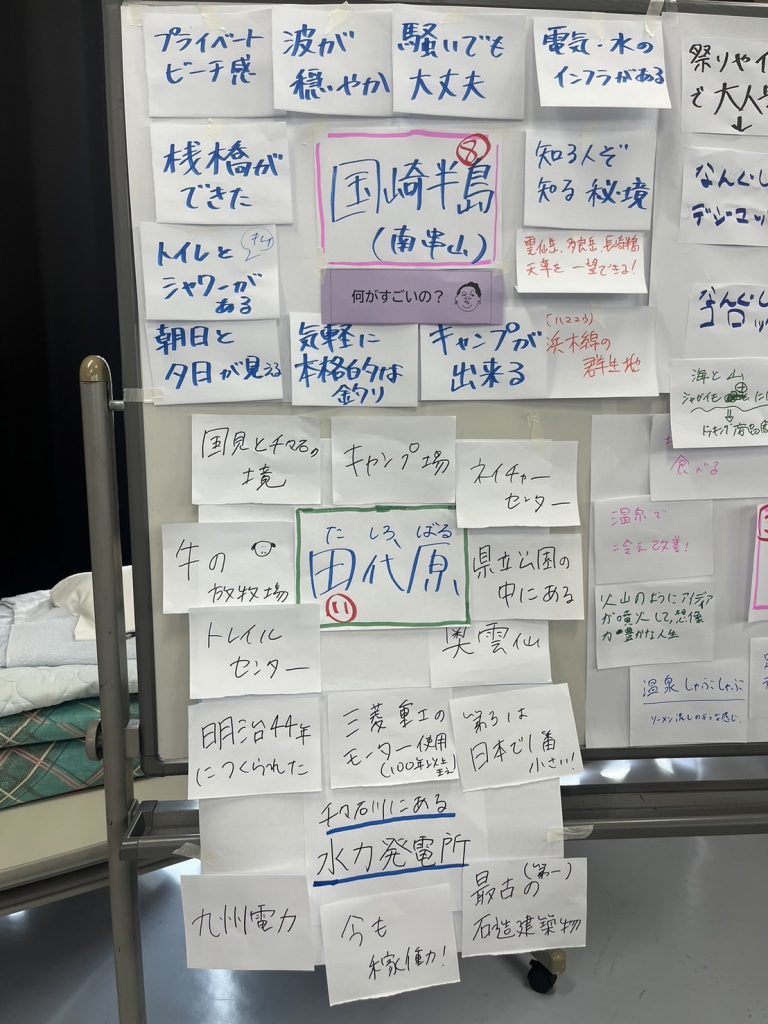 プライベート
ビーチ感
波が
穏やか
騒いでも
大丈夫
電気・水の
インフラがある
桟橋が
できた
⑧
国崎半島
(南串山)
知る人ぞ
知る秘境
トイレと
シャワーが
ある
何がすごいの?
雲仙岳、多良岳、長崎鼻
天草を一望できる!
朝日と
夕日が見える
気軽に
本格的な
釣り
キャンプが
出来る
(ハマユウ)
浜木綿の
群生地
国見と千々石の
境
キャンプ場
ネイチャー
センター
牛の
放牧場
たしろばる
田代原
⑪
県立公園の
中にある
トレイル
センター
奥雲仙
明治44年
につくられた
三菱重工の
モーター使用
(100年以上
第3は
日本で1番
小さい!
千々石川にある
水力発電所
九州電力
今も
稼働!
最古の(第一)
石造建築物
祭りや
で大人
↓
なんぐし
なんぐし
海と山
↓
食べる
温泉で
冷え改善!
火山のようにアイディア
が噴火して、想像
力豊かな人生
温泉しゃぶしゃぶ
ソーメン流しのような感じ。